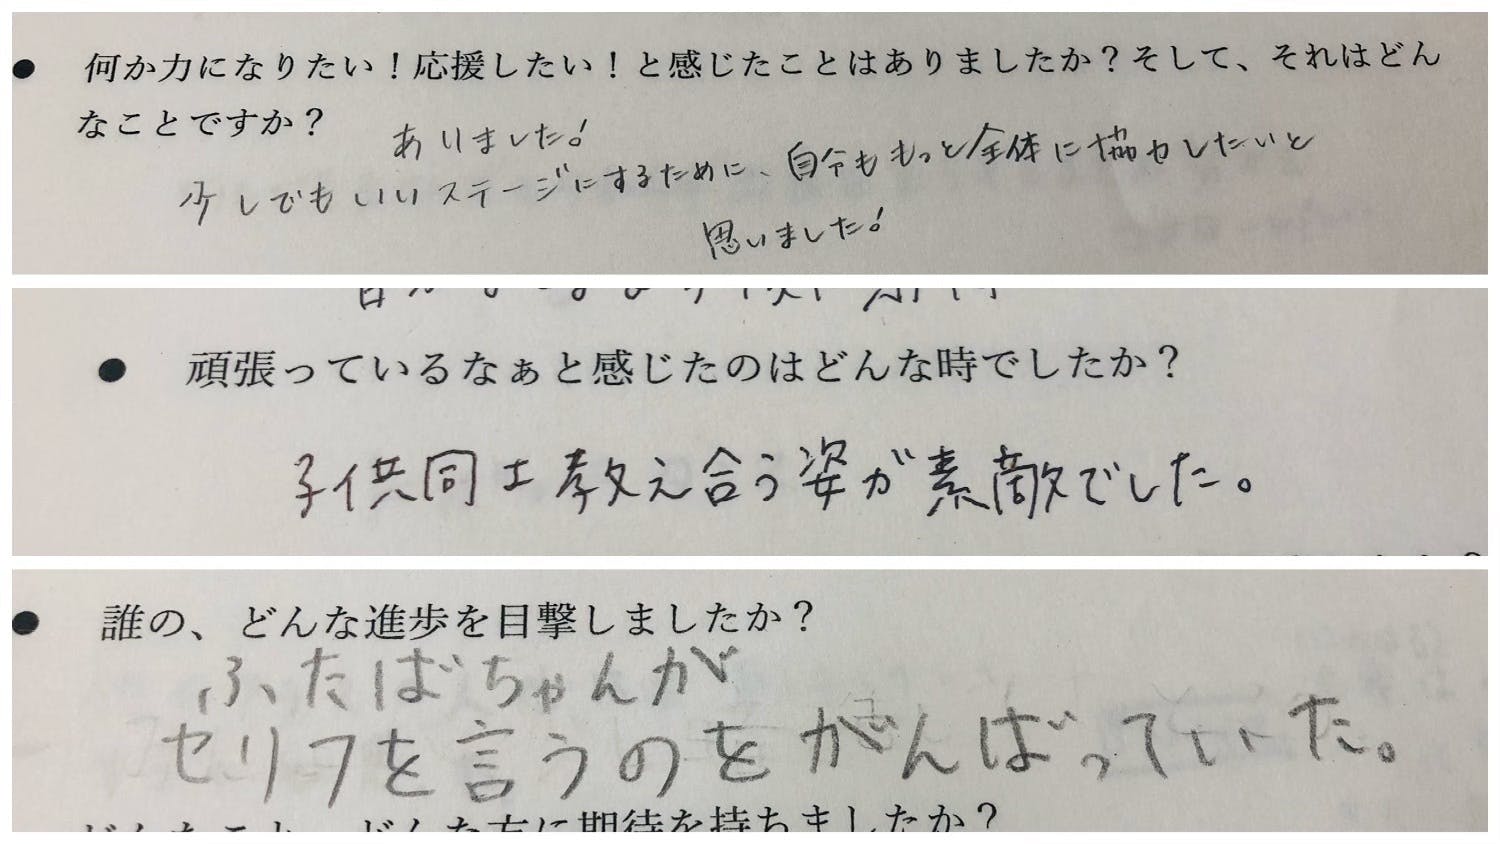 ● 何か力になりたい！応援したい！と感じたことはありましたか？そして、それはどん
なことですか？
ありました！
少しでもいいステージにするために、自分ももっと全体に協力したいと
思いました！
● 頑張っているなぁと感じたのはどんな時でしたか？
子供同士教え合う姿が素敵でした。
● 誰の、どんな進歩を目撃しましたか？
ふたばちゃんが
セリフを言うのをがんばっていた。
どんなこと、どんな方に期待を持ちましたか？